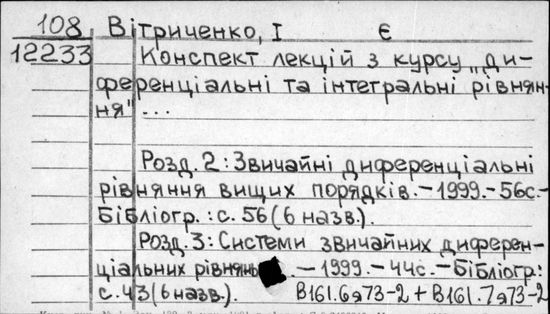 108 Вітриченко, І Є
12233 Конспект лекцій з курсу „Ди-
ференціальні та інтегральні рівнян-
ня" ...
Розд. 2: Звичайні диференціальні
рівняння вищих порядків. – 1999. – 56с. –
Бібліогр.: с. 56 (6 назв.).
Розд. 3: Системи звичайних диферен-
ціальних рівнянь. – 1999. – 44с. – Бібліогр:
с. 43 (6 назв.). В161.6я73-2 + В161.7я73-2